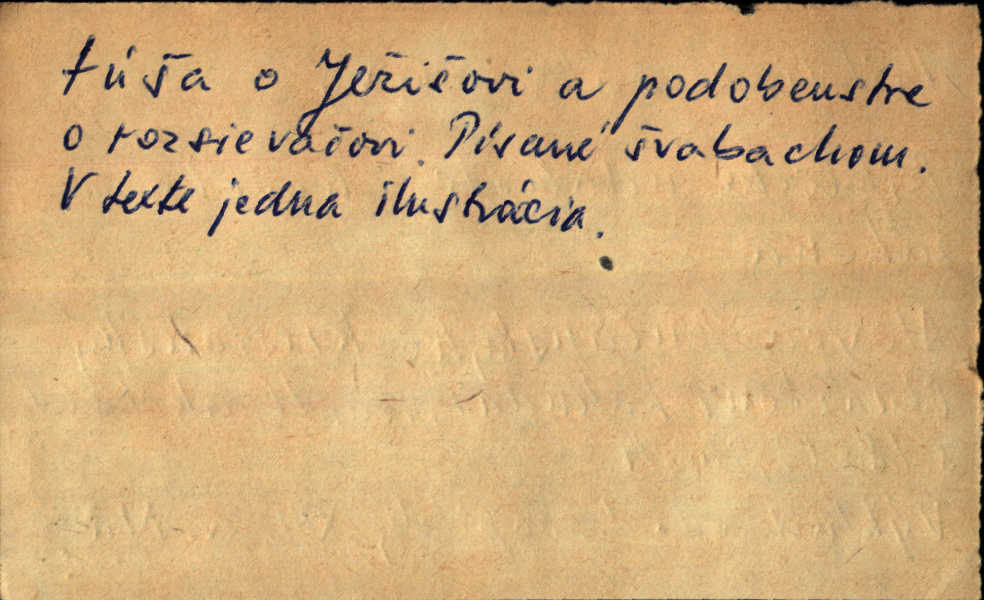 túša o Ježišovi a podobenstve
o rozsievačovi. Písané švabachom.
V texte jedna ilustrácia.